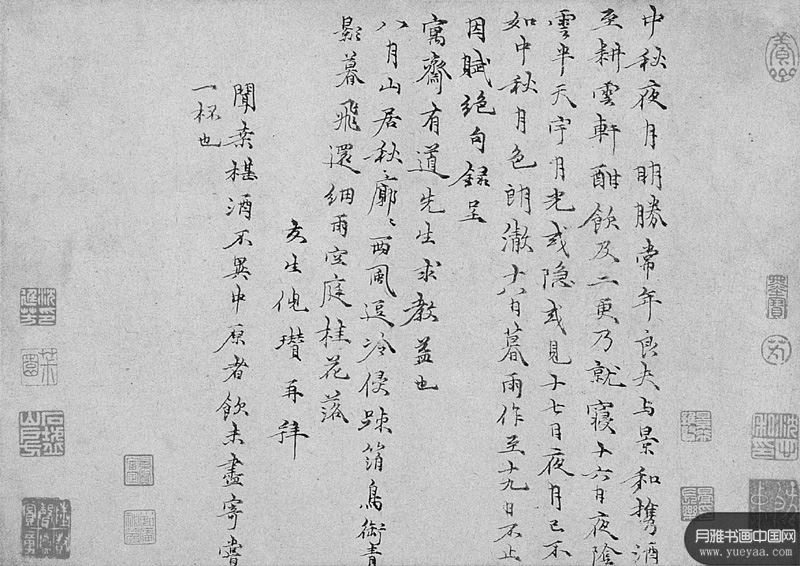 中秋夜月明勝常年良夫与景和携酒
至耕雲軒酣飲及二更乃就寢十六日夜陰
雲半天宇月光或隐或見十七日夜月已不
如中秋月色朗澈十八日暮雨作至十九日不止
因賦絶句録呈
寓齋有道先生求教益也
八月山居秋廓〻西風逗冷侵踈箔鳥銜青
影暮飛還細雨空庭桂花落
友生仇瓚再拜
聞桒椹酒不異中原者飲未盡寄嘗
一杯也
月雅书画中国网
www.yueyaa.com